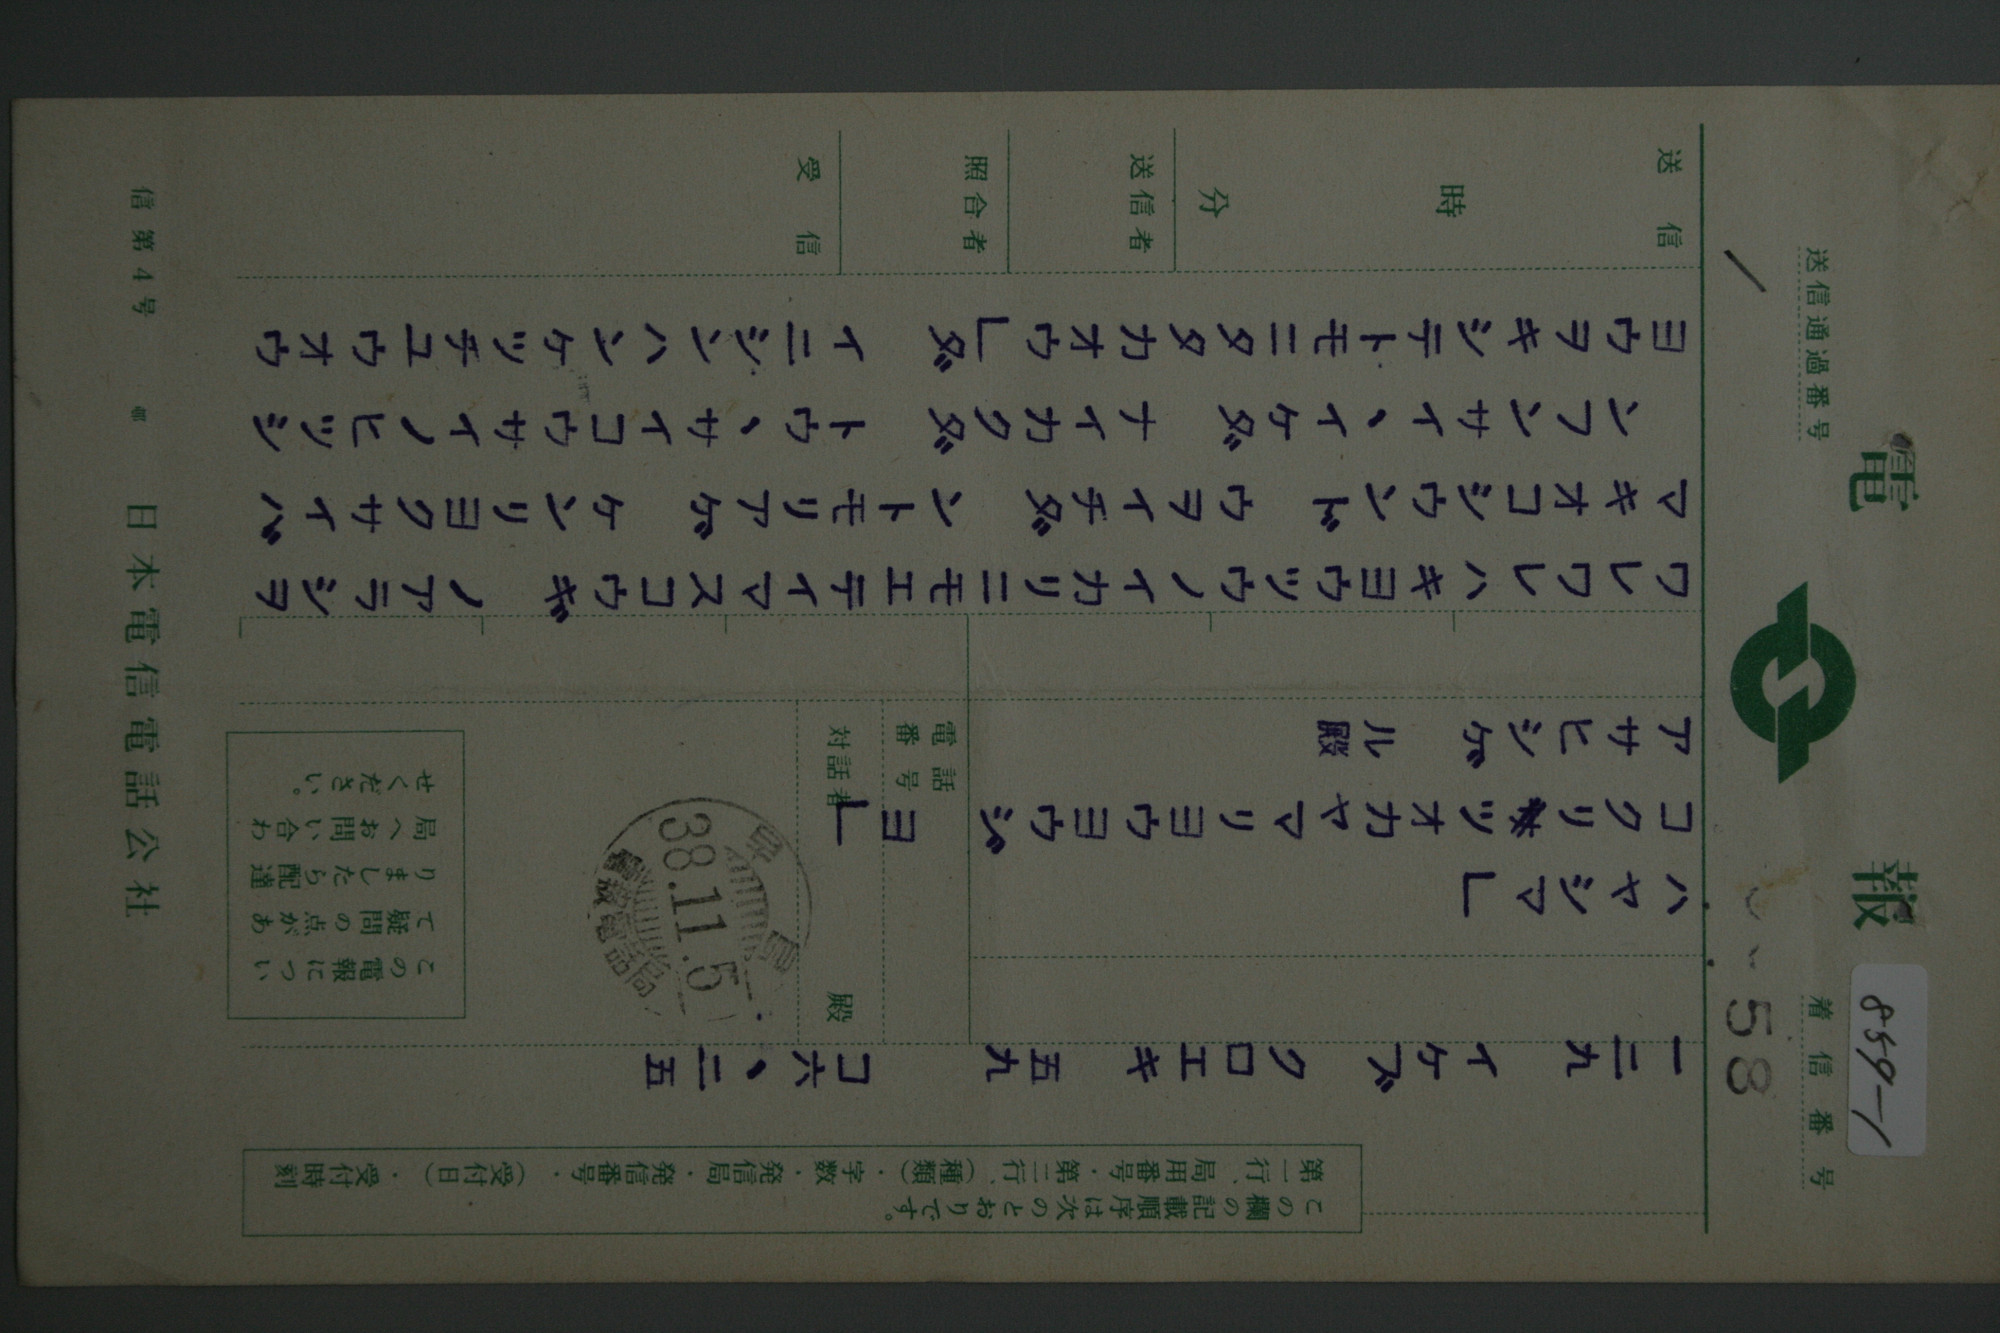 電報
送信通過番号
着信番号
8559-1
58
この欄の記載順序は次のとおりです。
第一行、局用番号・第二行、(種類)・字数・発信局・発信番号・(受付日)・受付時刻
一二九 イケブクロエキ 五九 コ六、二五
ハヤシマ」
コクリツオカヤマリヨウヨウジヨ」
アサヒシゲル殿
電話番号
対話者 殿
38.11.5
電報電話局
この電報につい
て疑問の点があ
りましたら配達
局へお問い合わ
せください。
ワレワレハキヨウツウノイカリニモエテイマスコウギノアラシヲ
マキオコシウンドウヲイチダントモリアゲケンリヨクサイバ
ンフンサイ、イケダナイカクダトウ、サイコウサイノヒツシ
ヨウヲキシテトモニタタカオウ」ダイニジハンケツチユウオウ
送信
時
分
送信者
照合者
受信
信第4号
日本電信電話公社